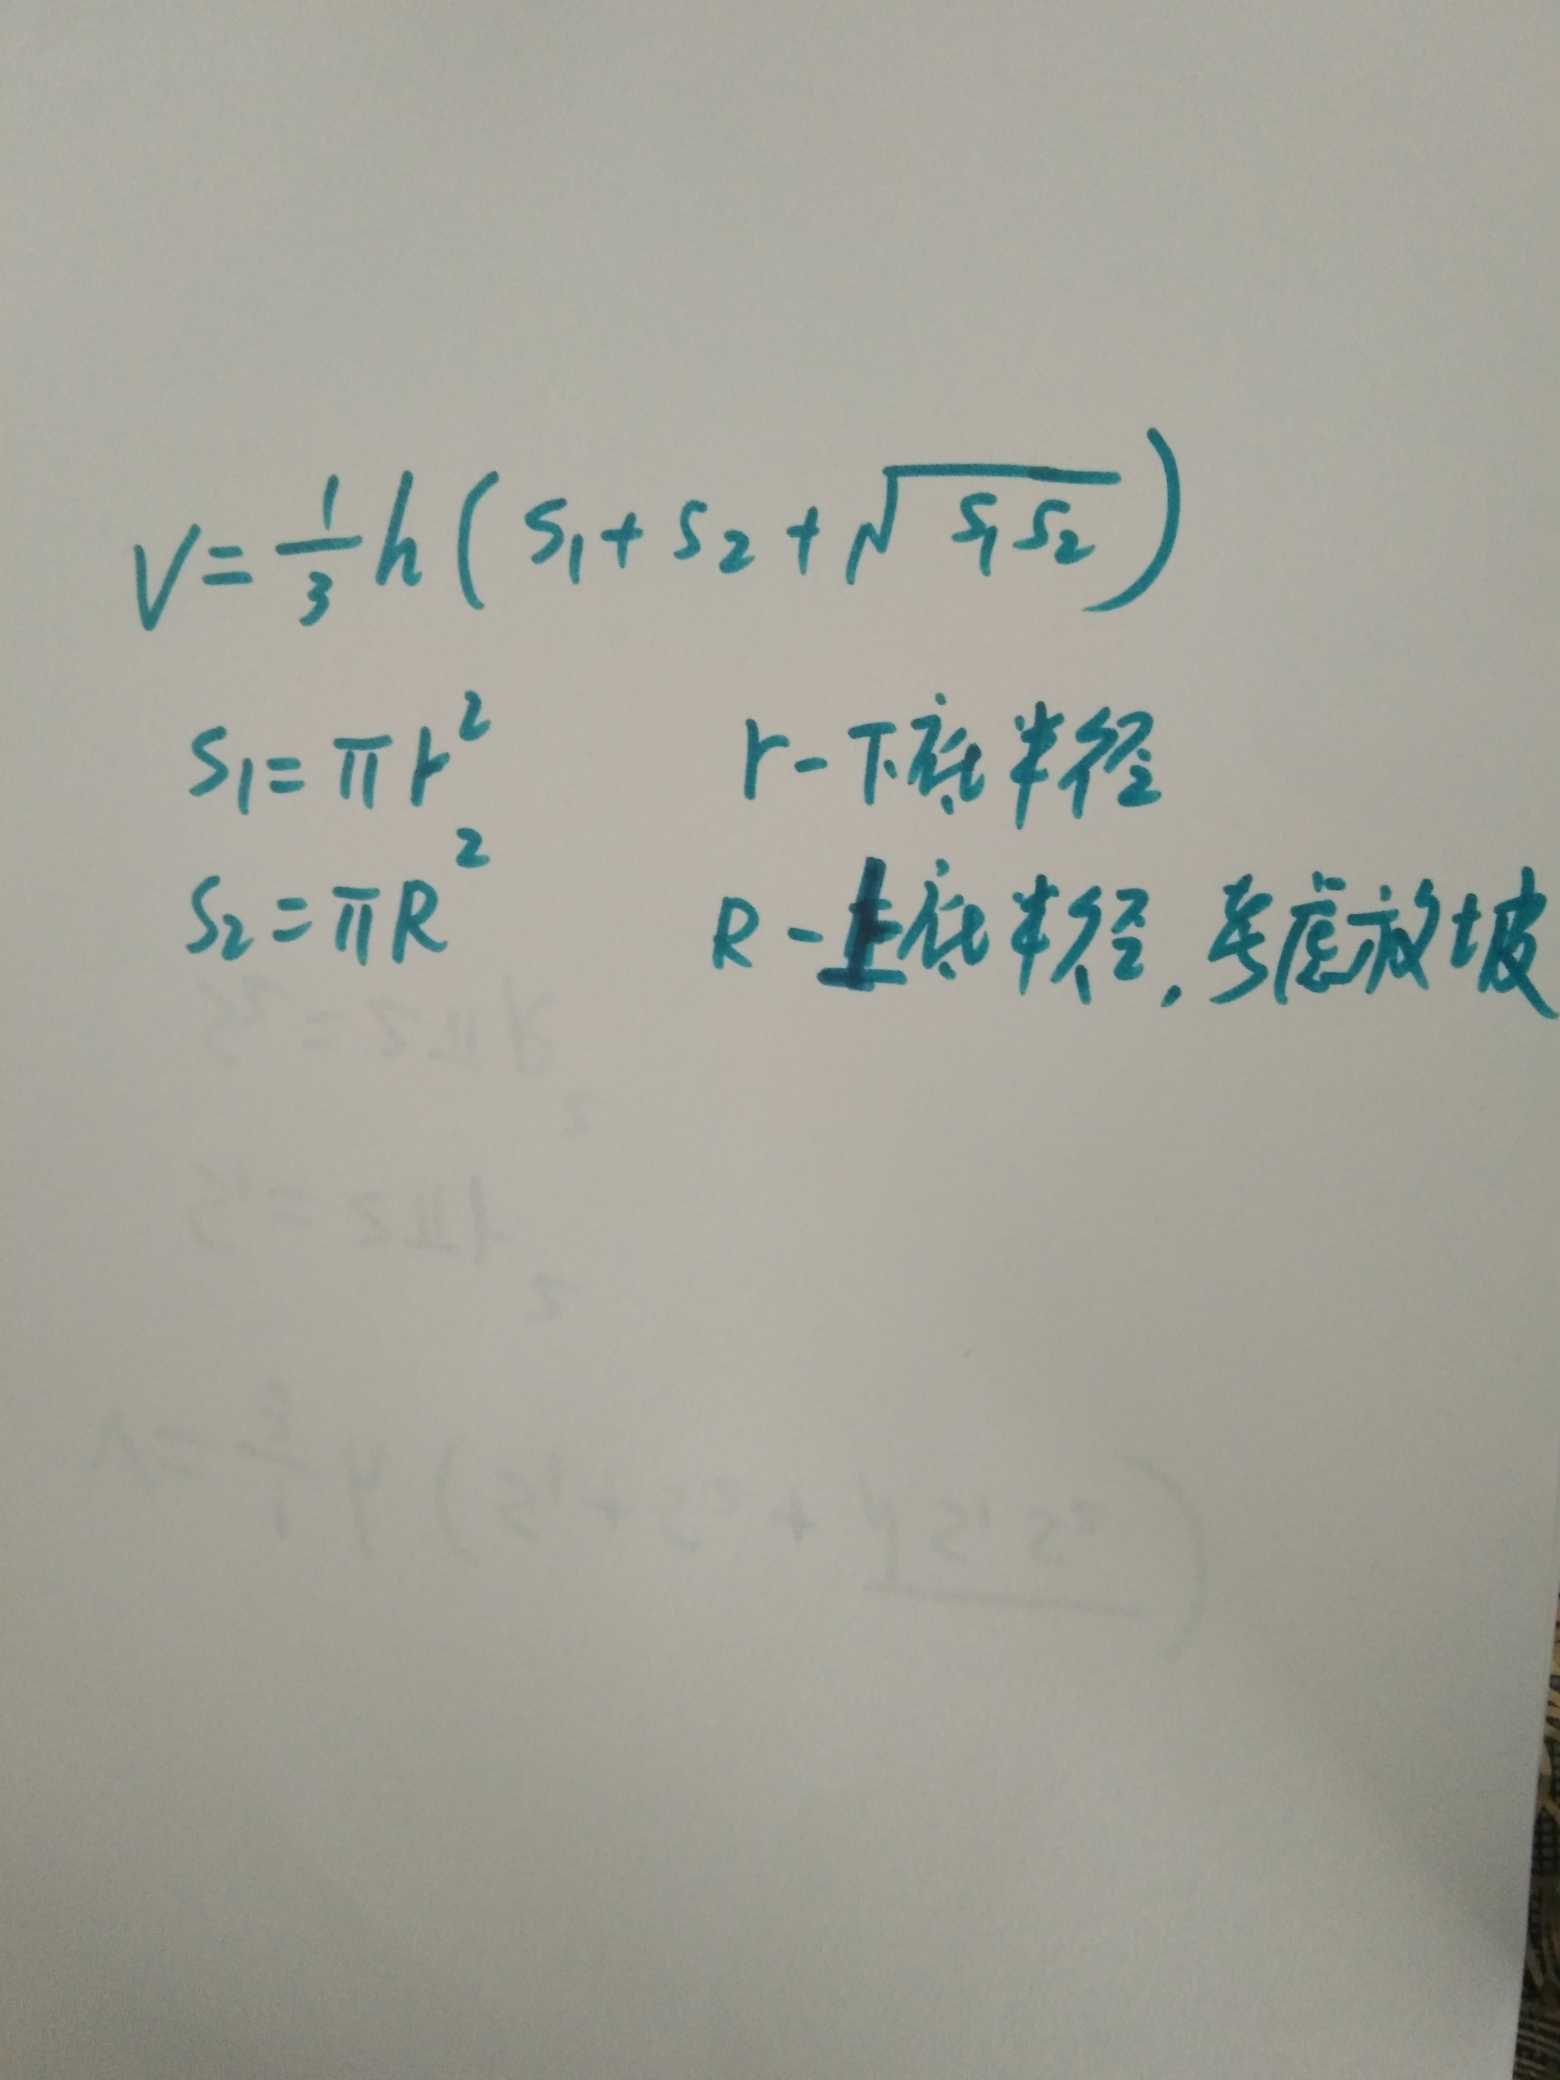 V=1/3h(S₁+S₂+√S₁S₂)
S₁=πr² r-下底半径
S₂=πR² R-上底半径,考虑放坡